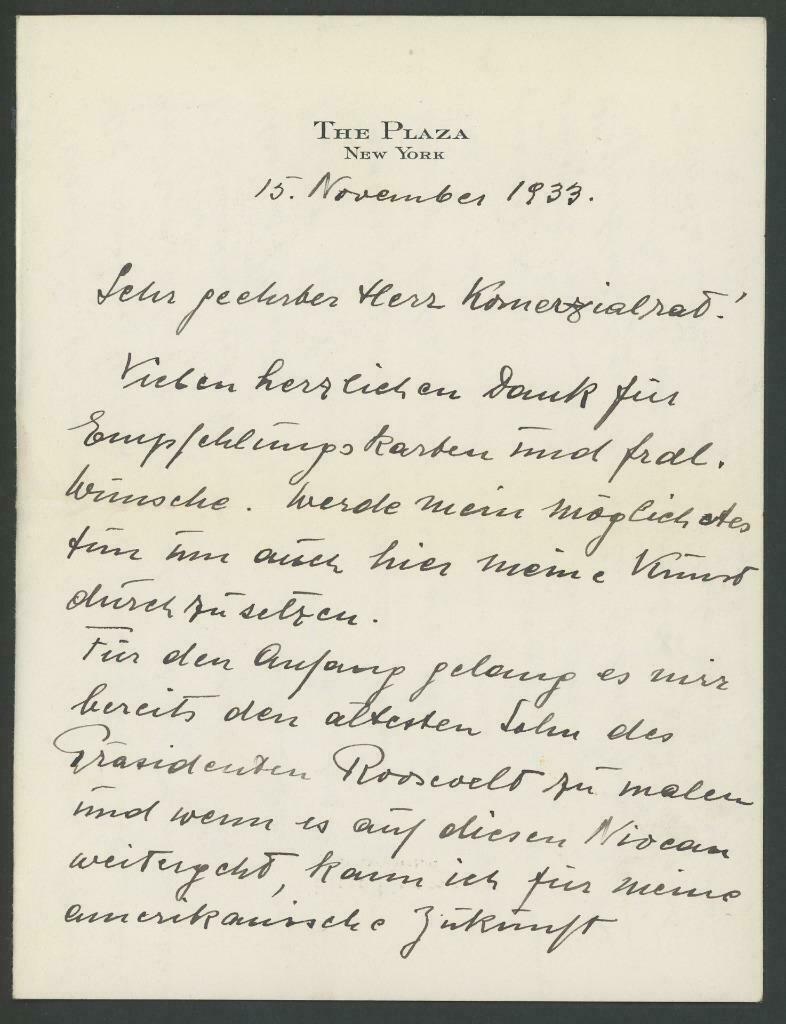 THE PLAZA
NEW YORK
15. November 1933.
Sehr geehrter Herr Komerzialrat!
Vielen herzlichen Dank für
Empfehlungskarten und frdl.
Wünsche. Werde mein möglichstes
tun um auch hier meine Kunst
durchzusetzen.
Für den Anfang gelang es mir
bereits den ältesten Sohn des
Präsidenten Roosevelt zu malen
und wenn es auf diesen Niveau
weitergeht, kann ich für meine
amerikanische Zukunft